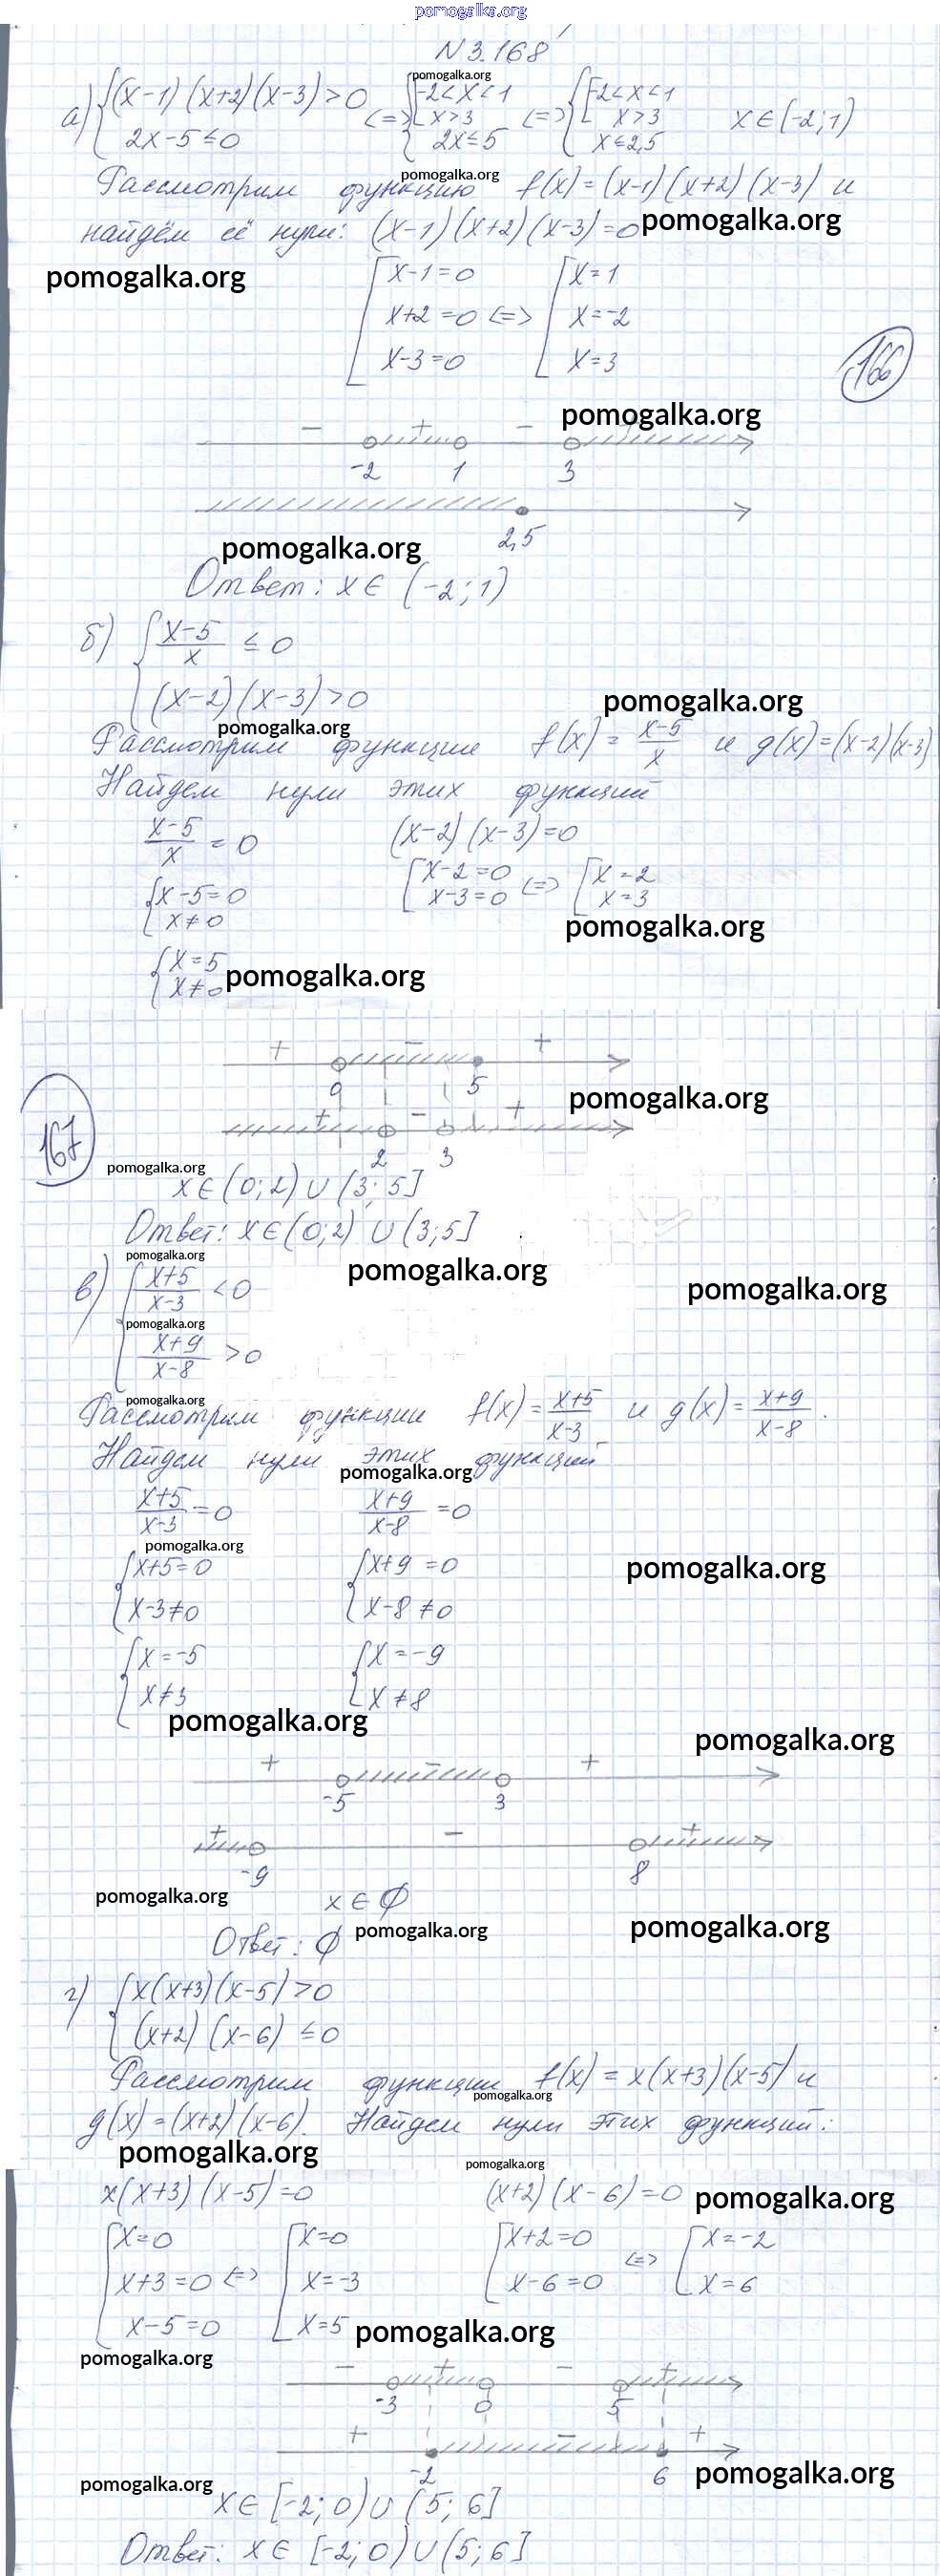 pomogalka.org
N 3.168
pomogalka.org
а) { (x-1)(x+2)(x-3)>0 <=> { [ -2<x<1 <=> { [ -2<x<1 x∈(-2;1)
x>3 x>3
2x-5≤0 2x≤5 x≤2,5
pomogalka.org
Рассмотрим функцию f(x)=(x-1)(x+2)(x-3) и
найдём её нули: (x-1)(x+2)(x-3)=0 pomogalka.org
pomogalka.org
[ x-1=0 [ x=1
x+2=0 <=> x=-2
x-3=0 x=3
166
pomogalka.org
- + - +
-2 1 3
2,5
pomogalka.org
Ответ: x∈(-2;1)
б) { (x-5)/x ≤ 0
(x-2)(x-3)>0
pomogalka.org
pomogalka.org
Рассмотрим функции f(x)=(x-5)/x и g(x)=(x-2)(x-3)
Найдем нули этих функций
(x-5)/x = 0 (x-2)(x-3)=0
{ x-5=0 [ x-2=0 <=> [ x=2
x≠0 x-3=0 x=3
pomogalka.org
{ x=5
x≠0 pomogalka.org
+ - +
0 5
pomogalka.org
167
+ - +
2 3
pomogalka.org
x∈(0;2)∪(3;5]
Ответ: x∈(0;2)∪(3;5]
pomogalka.org
pomogalka.org
pomogalka.org
в) { (x+5)/(x-3) <0
pomogalka.org
(x+9)/(x-8) >0
pomogalka.org
Рассмотрим функции f(x)=(x+5)/(x-3) и g(x)=(x+9)/(x-8).
Найдем нули этих функций
pomogalka.org
(x+5)/(x-3)=0 (x+9)/(x-8)=0
pomogalka.org
{ x+5=0 { x+9=0
pomogalka.org
x-3≠0 x-8≠0
{ x=-5 { x=-9
x≠3 x≠8
pomogalka.org
pomogalka.org
+ - +
-5 3
+ - +
-9 8
pomogalka.org x∈∅
Ответ: ∅ pomogalka.org pomogalka.org
г) { x(x+3)(x-5)>0
(x+2)(x-6)≤0
Рассмотрим функции f(x)=x(x+3)(x-5) и
pomogalka.org
g(x)=(x+2)(x-6). Найдем нули этих функций:
pomogalka.org
pomogalka.org
x(x+3)(x-5)=0 (x+2)(x-6)=0 pomogalka.org
[ x=0 [ x=0 [ x+2=0 <=> [ x=-2
x+3=0 <=> x=-3 x-6=0 x=6
x-5=0 x=5 pomogalka.org
pomogalka.org
- + - +
-3 0 5
+ - +
-2 6
pomogalka.org
pomogalka.org
x∈[-2;0)∪(5;6]
Ответ: x∈[-2;0)∪(5;6]